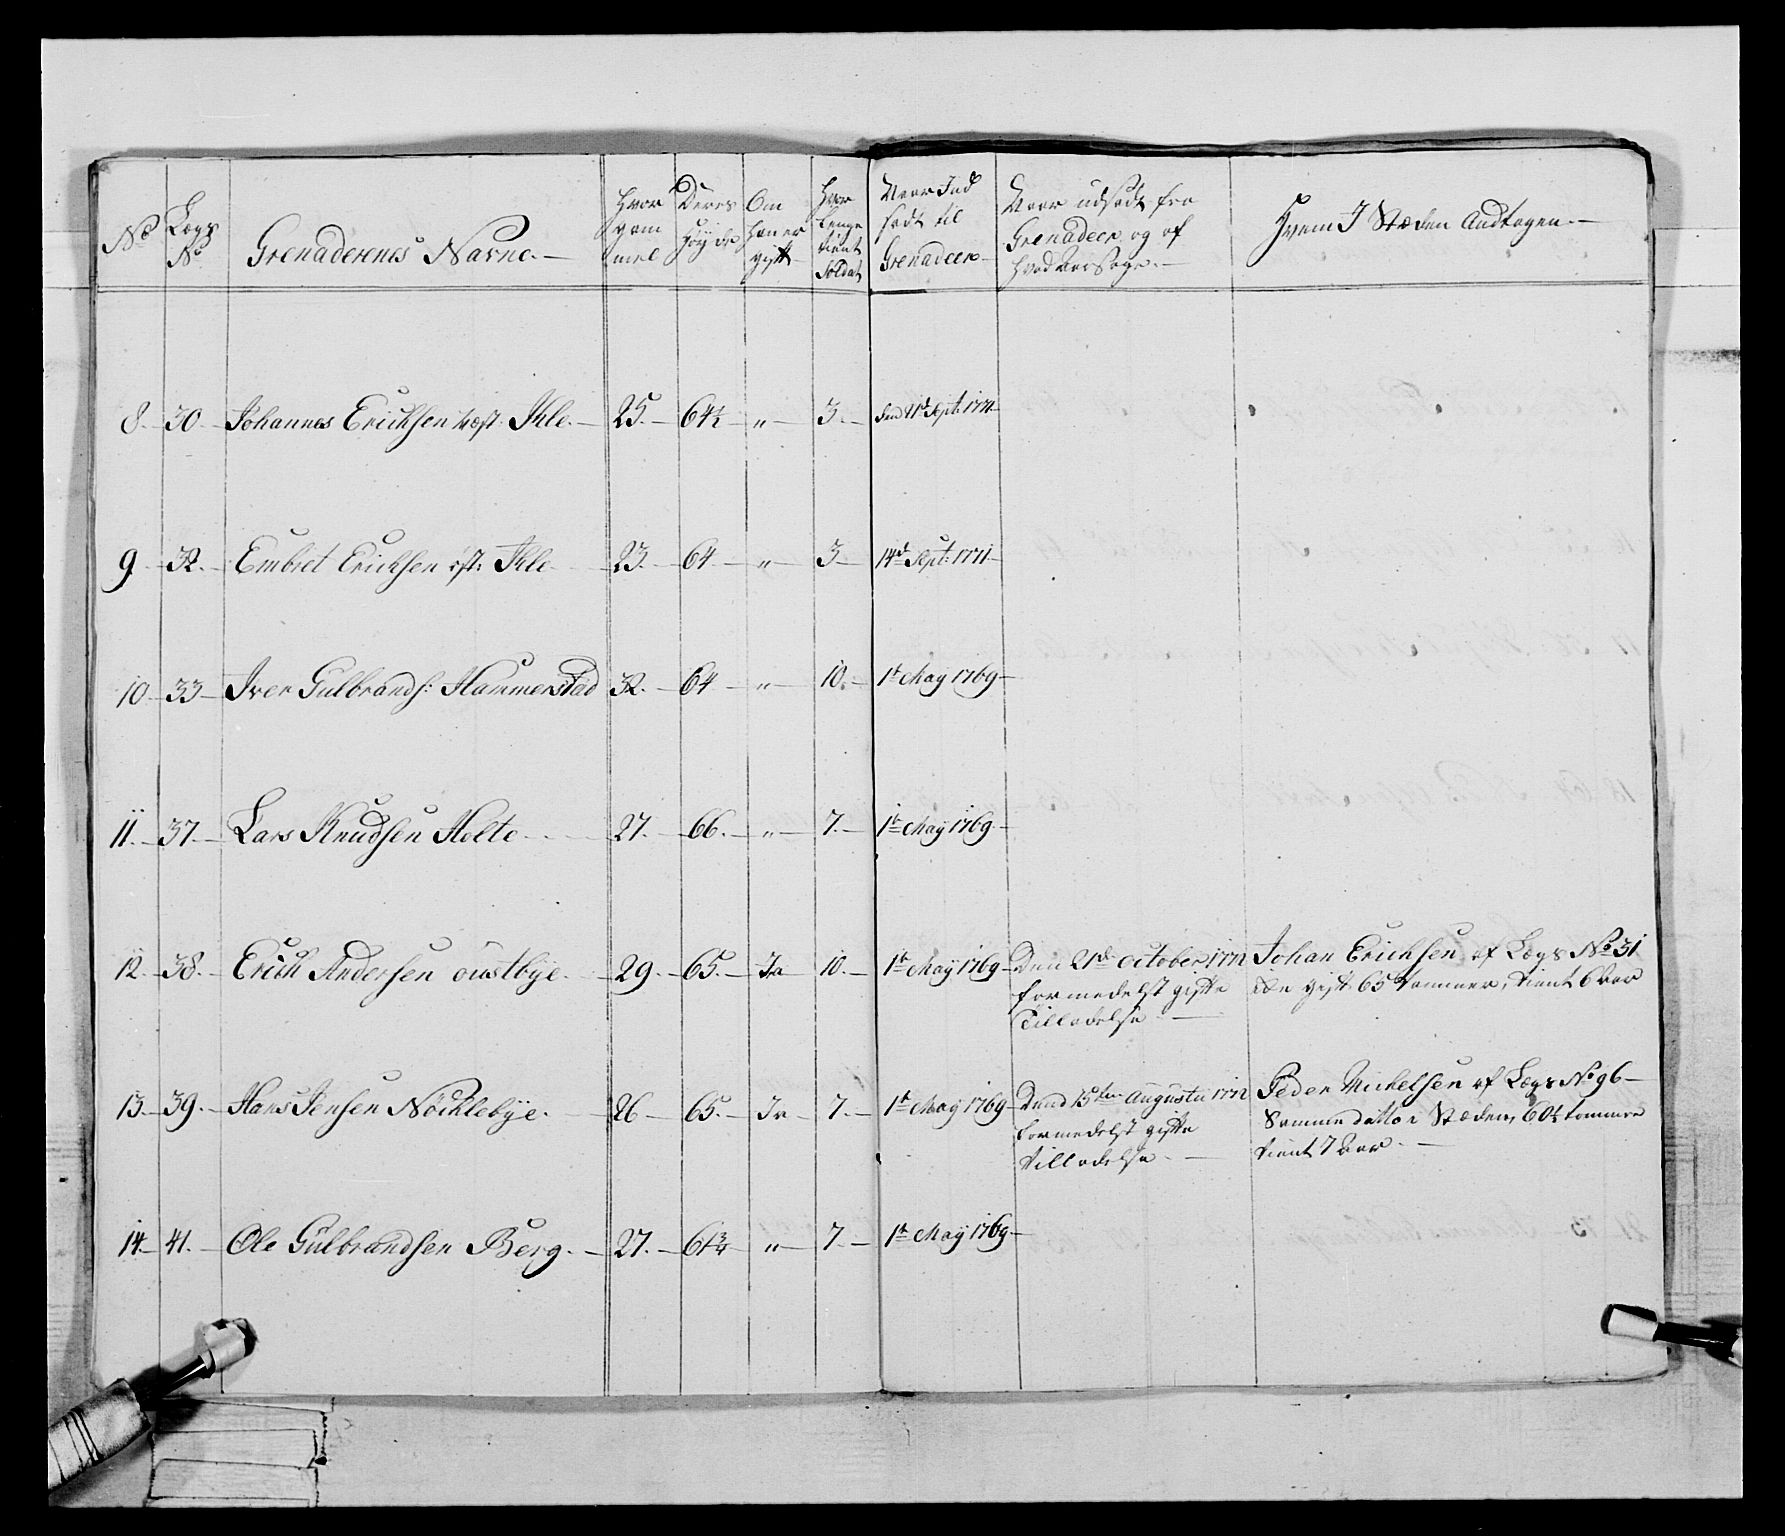 No
Lægs No
Grenaderenes Navne.
Hvor gammel
Deres Høyde
Om han er gift
Hvor lenge tient Soldat
Naar Indsadt til Grenadeer
Naar udsadt fra Grenadeer og af hvad Aarsage.
Hvem I Stæden Andtagen.
8. 30. Johannes Erichsen west: Ihle. 25. 64½ " 3. den 21de Sept: 1771
9 32. Embret Erichsen øst: Ihle 23. 64 " 3 14de Sept: 1771
10 33 Iver Gulbrands: Hammerstad 32. 64 " 10. 1te May 1769
11. 37. Lars Knudsen Holte 27. 66. " 7. 1te May 1769
12. 38. Erich Andersen oustbÿe 29. 65. Ja 10. 1te May 1769 Den 21de October 1771 Johan Erichsen af Lægs No 31
formedelst gifte gift 65 tommer, tient 6 Aar
Tilladelse
13 39. Hans Jensen Nöcklebÿe. 26 65. Ja 7. 1te May 1769 Dend 15den Augusti 1772 Peder Michelsen af Lægs No 96
formedelst gifte Samme datto i Stæden, 60½ tommer
tilladelse. tient 7 Aar.
14 41. Ole Gulbrandsen Berg. 27. 61¾ " 7 1te May 1769